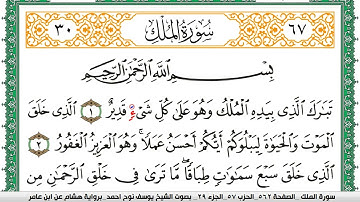 ٣٠ سُورَةُ المُلْكِ ٦٧
بِسْمِ اللَّهِ الرَّحْمَٰنِ الرَّحِيمِ
تَبَارَكَ الَّذِي بِيَدِهِ الْمُلْكُ وَهُوَ عَلَىٰ كُلِّ شَيْءٍ قَدِيرٌ ١ الَّذِي خَلَقَ
الْمَوْتَ وَالْحَيَوٰةَ لِيَبْلُوَكُمْ أَيُّكُمْ أَحْسَنُ عَمَلًا ۚ وَهُوَ الْعَزِيزُ الْغَفُورُ ٢
الَّذِي خَلَقَ سَبْعَ سَمَٰوَٰتٍ طِبَاقًا ۖ مَا تَرَىٰ فِي خَلْقِ الرَّحْمَٰنِ مِن
سورة الملك _الصفحة ٥٦٢ الحزب ٥٧ الجزء ٢٩ _ بصوت الشيخ يوسف نوح احمد_ برواية هشام عن ابن عامر